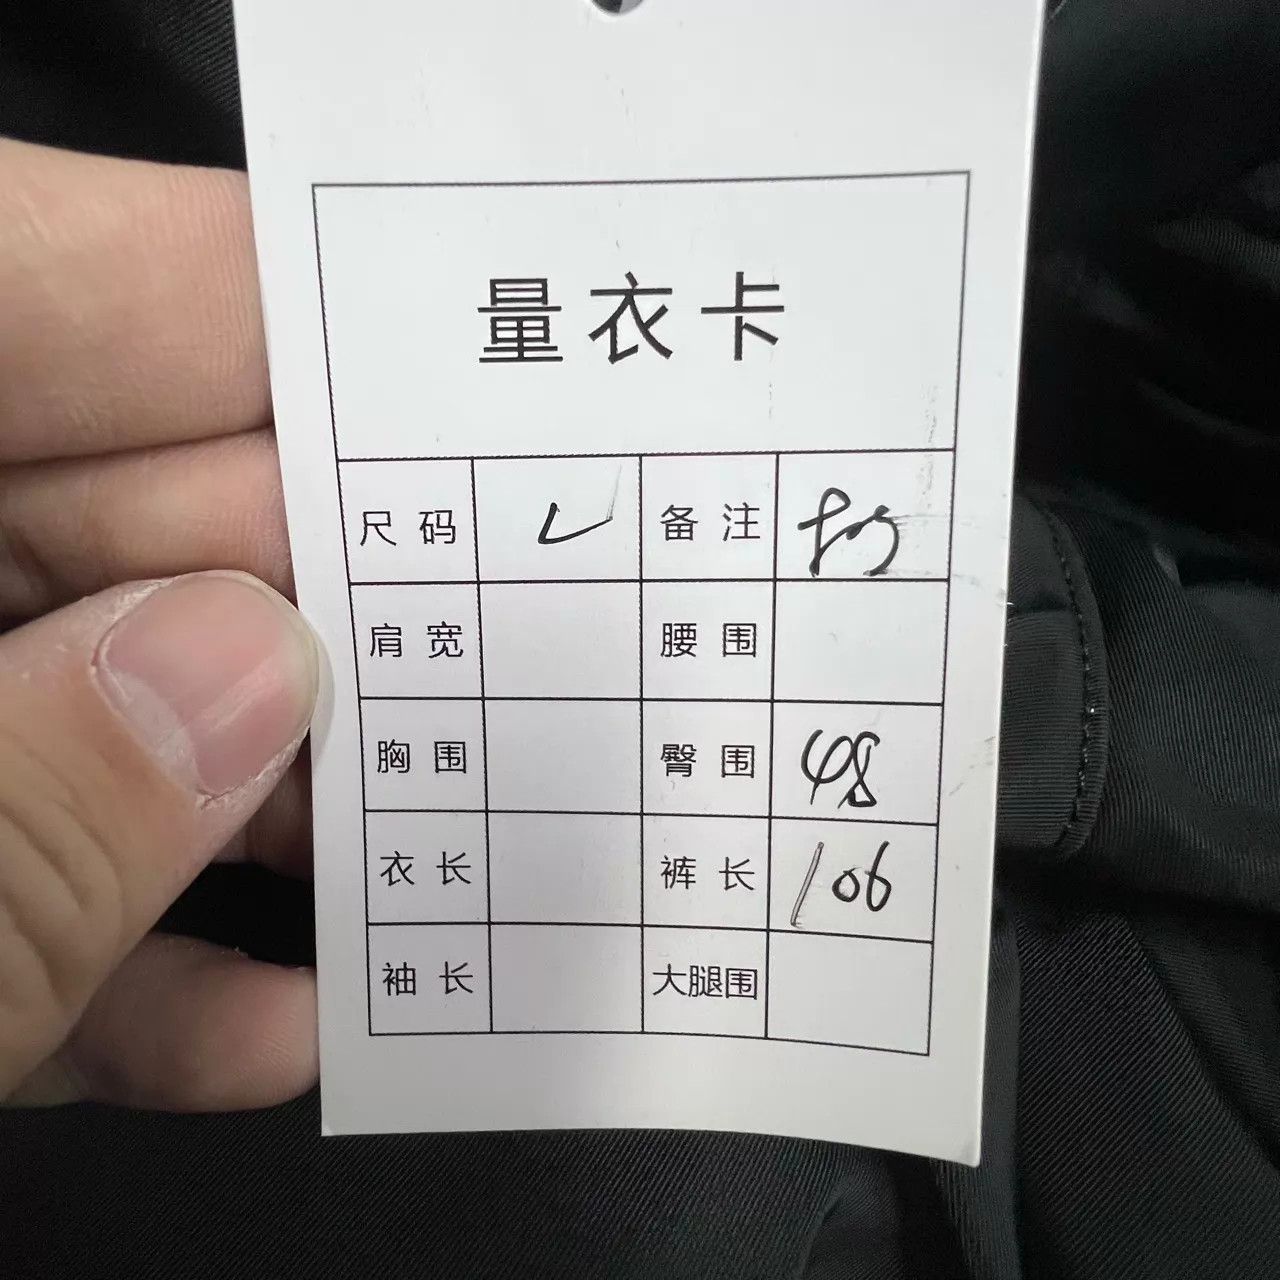 量衣卡
尺码 L 备注
肩宽 腰围
胸围 臀围 48
衣长 裤长 106
袖长 大腿围